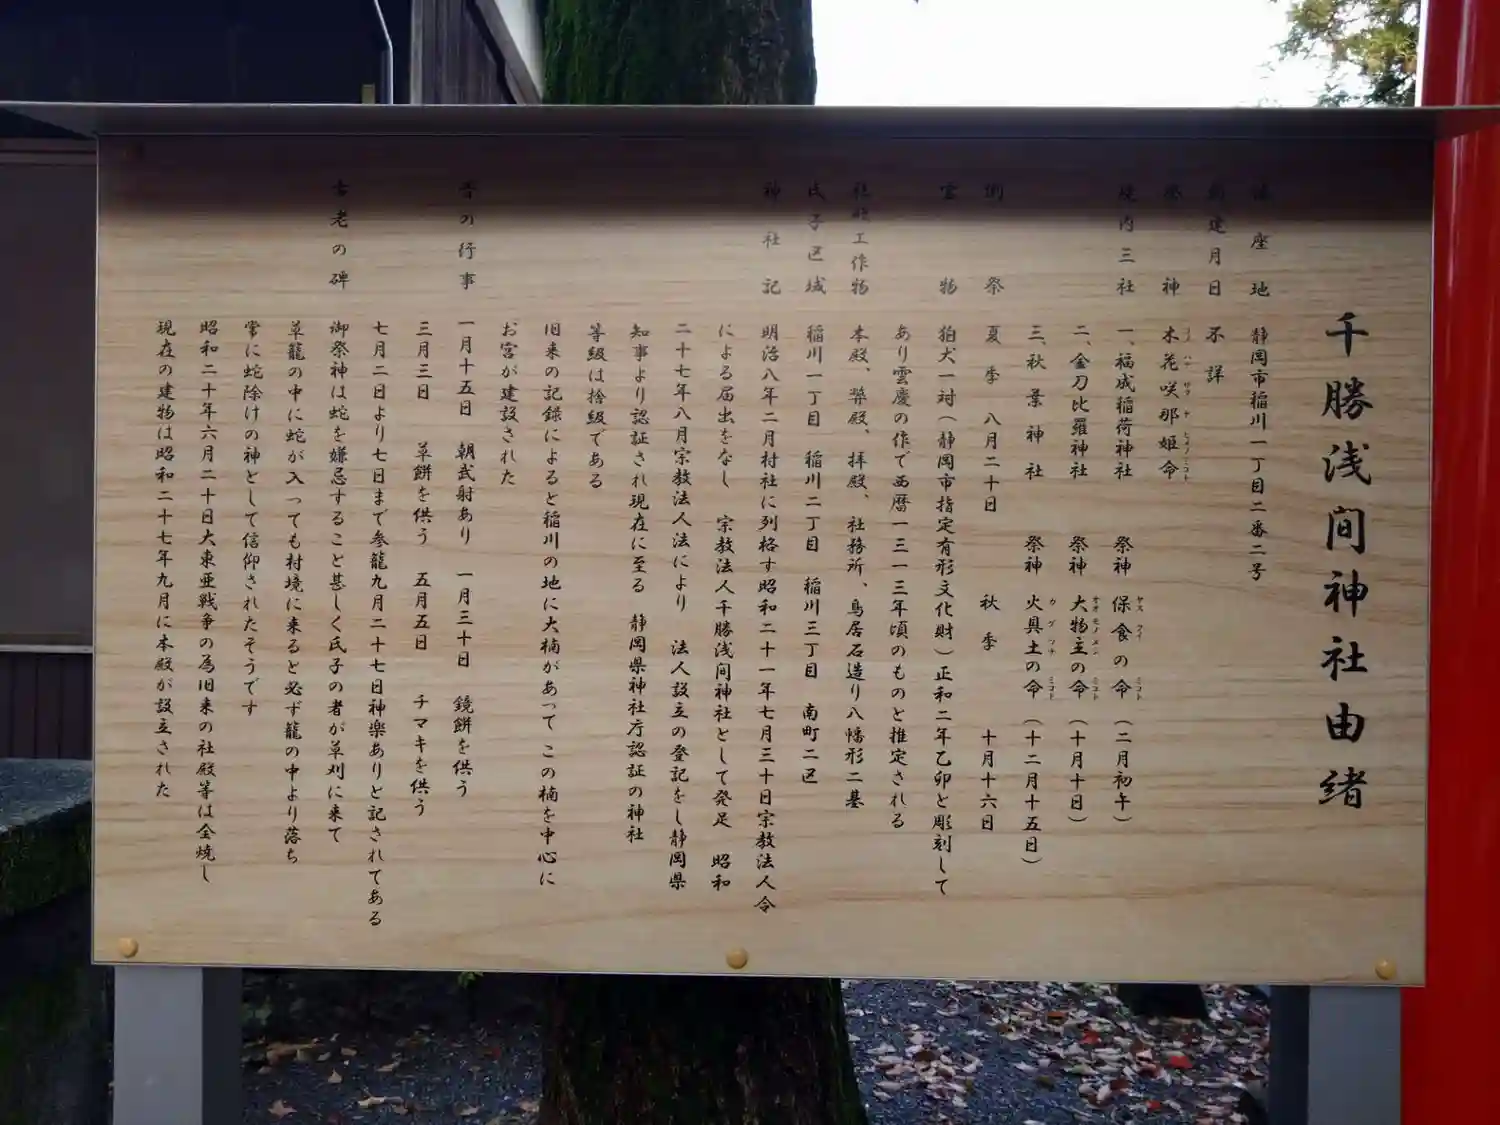 千勝浅间神社由緒
鎮座地 静岡市稲川一丁目二番二号
創建月日 不詳
祭神 木花咲那姫命
境内三社 一、福成稲荷神社 祭神 保食の命(二月初午)
二、金刀比羅神社 祭神 大物主の命(十月十日)
三、秋葉神社 祭神 火具土の命(十二月十五日)
例祭 夏季 八月二十日 秋季 十月十六日
宝物 狛犬一対(静岡市指定有形文化財)正和二年乙卯と彫刻して
あり雲慶の作で西暦一三一三年頃のものと推定される
社地工作物 本殿、幣殿、拝殿、社務所、鳥居石造り八幡形二基
氏子区域 稲川一丁目 稲川二丁目 稲川三丁目 南町二区
神社記 明治八年二月村社に列格す昭和二十一年七月三十日宗教法人令
による届出をなし 宗教法人千勝浅间神社として発足 昭和
二十七年八月宗教法人法により 法人設立の登記をし静岡県
知事より認証され現在に至る 静岡県神社庁認証の神社
等級は拾級である
旧来の記録によると稲川の地に大楠があって この楠を中心に
お宮が建設された
昔の行事 一月十五日 朝武射あり 一月三十日 鏡餅を供う
三月三日 草餅を供う 五月五日 チマキを供う
七月二日より七日まで参籠九月二十七日神楽ありと記されてある
古老の碑 御祭神は蛇を嫌忌すること甚しく氏子の者が草刈に来て
草籠の中に蛇が入っても村境に来ると必ず籠の中より落ち
常に蛇除けの神として信仰されたそうです
昭和二十年六月二十日大東亜戦争の為旧来の社殿等は全焼し
現在の建物は昭和二十七年九月に本殿が設立された